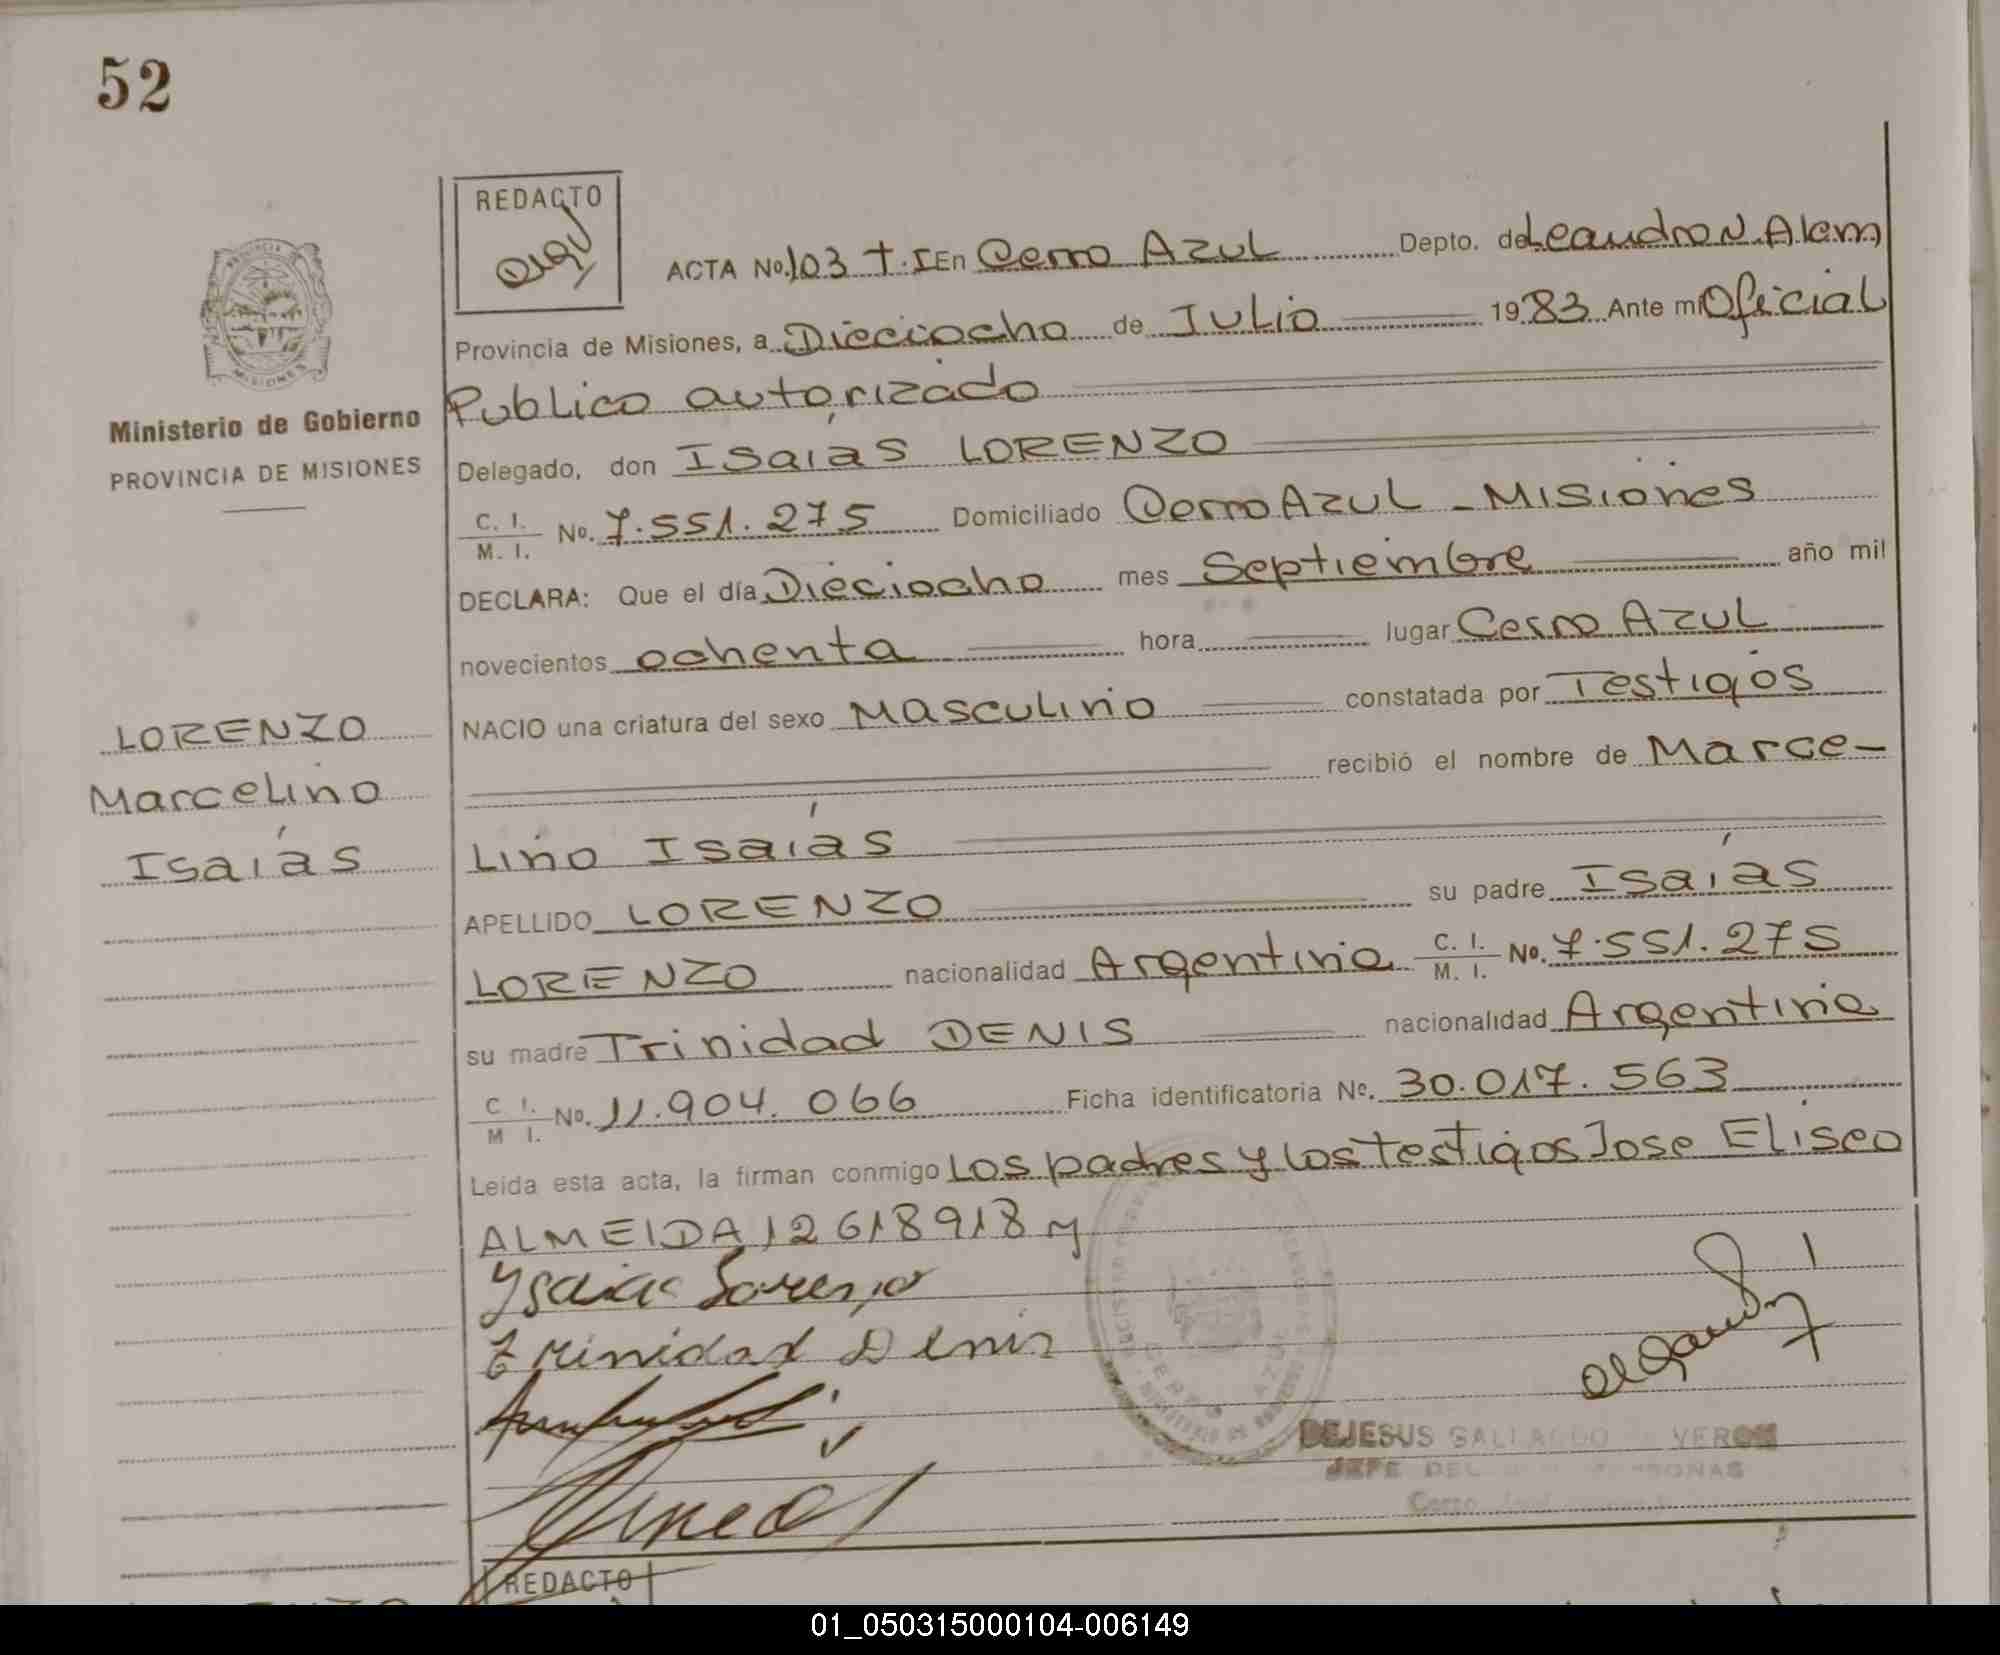 52
REDACTO
ACTA No. 103 T. I En Cerro Azul Depto. de Leandro N. Alem
Provincia de Misiones, a Dieciocho de Julio 1983 Ante mi Oficial
Publico autorizado
Delegado, don Isaías LORENZO
C. I. / M. I. No. 7.551.275 Domiciliado Cerro Azul - Misiones
DECLARA: Que el día Dieciocho mes Septiembre año mil
novecientos ochenta hora lugar Cerro Azul
NACIO una criatura del sexo Masculino constatada por Testigos
recibió el nombre de Marce-
Lino Isaías
APELLIDO LORENZO su padre Isaías
LORENZO nacionalidad Argentina C. I. / M. I. No. 7.551.275
su madre Trinidad DENIS nacionalidad Argentina
C. I. / M. I. No. 11.904.066 Ficha identificatoria No. 30.017.563
Leída esta acta, la firman conmigo Los padres y los Testigos Jose Eliseo
ALMEIDA 12618918 y
Ysaias Lorenzo
Trinidad Denis
CERRO AZUL
DEJESUS GALLARDO VERON
JEFE DEL PERSONAS
Cerro
PROVINCIA
MISIONES
Ministerio de Gobierno
PROVINCIA DE MISIONES
LORENZO
Marcelino
Isaías
REDACTO
01_050315000104-006149